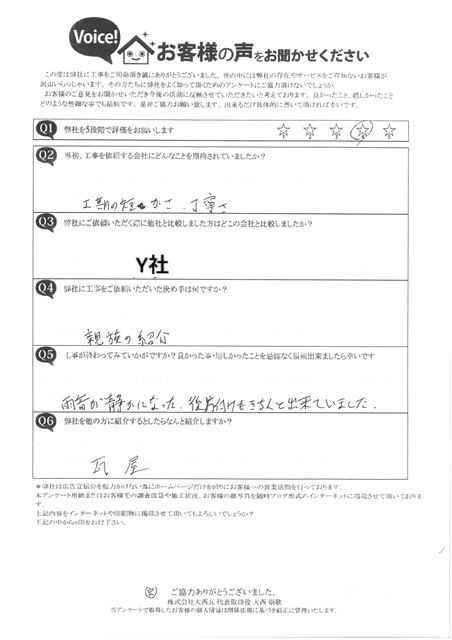 Voice!
お客様の声をお聞かせください
この度は弊社に工事をご用命頂き誠にありがとうございました。世の中には弊社の存在やサービスをご存知ないお客様が
沢山いらっしゃいます。その方たちに弊社をよく知って頂くためのアンケートにご協力頂けないでしょうか。
お客様のご意見をお聞かせいただき今後の活動に反映させていただきたいと考えております。良かったこと、嬉しかったこと
どのような些細な事でも結構です。是非ご協力お願い致します。出来るだけ具体的に書いて頂ければ幸いです。
Q1 弊社を5段階で評価をお願いします ☆ ☆ ☆ ☆ ☆
Q2 当初、工事を依頼する会社にどんなことを期待されていましたか?
工期の短かさ、丁寧さ
Q3 弊社にご依頼いただく際に他社と比較しました方はどこの会社と比較しましたか?
Y社
Q4 弊社に工事をご依頼いただいた決め手は何ですか?
親族の紹介
Q5 工事が終わってみていかがですか?良かった事・嬉しかったことを忌憚なく頂戴出来ましたら幸いです
雨音が静かになった、後片付けもきちんと出来ていました。
Q6 弊社を他の方に紹介するとしたらなんと紹介しますか?
瓦屋
*弊社は広告宣伝費を極力かけない為にホームページだけを頼りにお客様への営業活動を行っております。
本アンケート用紙またはお客様宅の調査風景や施工状況、お客様の顔写真を随時ブログ形式のインターネットに掲載させて頂いておりま
す。
上記内容をインターネットや印刷物に掲載させて頂いてもよろしいでしょうか?
下記の中から○印をお付け下さい。
ご協力ありがとうございました。
株式会社大西瓦 代表取締役 大西 崇敬
当アンケートで取得したお客様の個人情報は関係法規に基づき厳正に管理いたします。